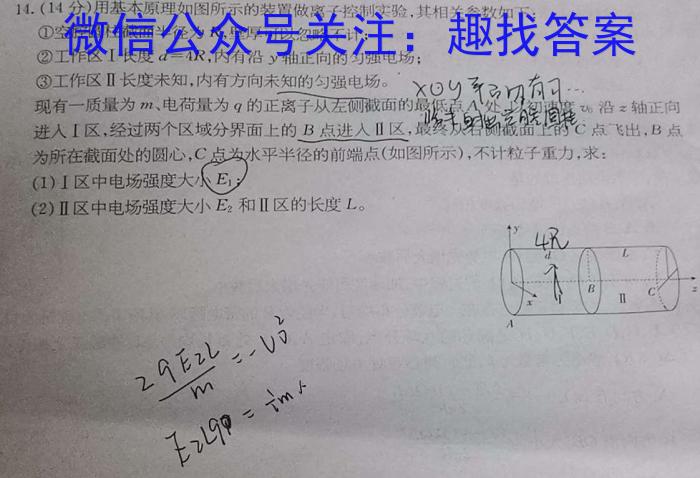 14. (14 分)用基本原理如图所示的装置做离子控制实验,其相关参数如下:
微信公众号关注：趣找答案
②工作区Ⅰ长度 d=4R,内有沿 y 轴正向的匀强电场;
③工作区Ⅱ长度未知,内有方向未知的匀强电场。
XOY 平面内有
现有一质量为 m、电荷量为 q 的正离子从左侧截面的最低点 A 处,以初速度 v₀ 沿 z 轴正向
进入Ⅰ区,经过两个区域分界面上的 B 点进入Ⅱ区,最终从右侧截面上的 C 点飞出,B 点
为所在截面处的圆心,C 点为水平半径的前端点(如图所示),不计粒子重力,求:
(1)Ⅰ区中电场强度大小 E₁;
(2)Ⅱ区中电场强度大小 E₂ 和Ⅱ区的长度 L。
y
4R
d
L
B
C
z
x
Ⅱ
A